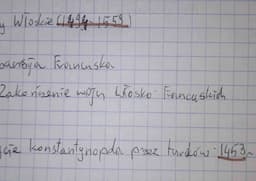 y Włoskie (1494 1559)
Francuska
Zakończenie wojn Włosko Francuskich
cie konstantynopola przez turków 1453